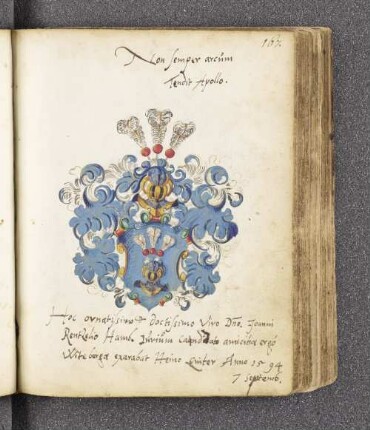 102
Non semper arcum
tendit Apollo.
Hoc ornatissimo & doctissimo Viro Dno. Joanni
Rentzelio Hamb. Jurium Candidato amicitiae ergo
Witebergae exarabat Heino Anno 1594
7 Septemb.